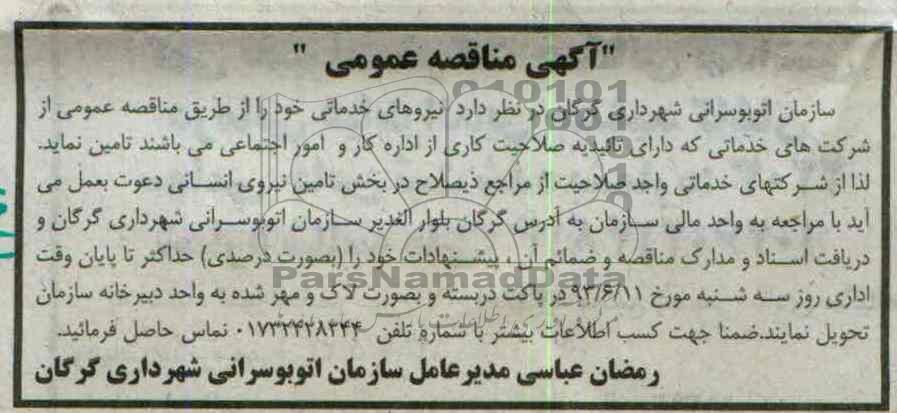 "آگهی مناقصه عمومی "
سازمان اتوبوسرانی شهرداری گرگان در نظر دارد نیروهای خدماتی خود را از طریق مناقصه عمومی از
شرکت های خدماتی که دارای تائیدیه صلاحیت کاری از اداره کار و امور اجتماعی می باشند تامین نماید.
لذا از شرکتهای خدماتی واجد صلاحیت از مراجع ذیصلاح در بخش تامین نیروی انسانی دعوت بعمل می
آید با مراجعه به واحد مالی سازمان به آدرس گرگان بلوار الغدیر سازمان اتوبوسرانی شهرداری گرگان و
دریافت اسناد و مدارک مناقصه و ضمائم آن ، پیشنهادات خود را (بصورت درصدی) حداکثر تا پایان وقت
ParsNamadData
اداری روز سه شنبه مورخ ۹۳/۶/۱۱ در پاکت دربسته و بصورت لاک و مهر شده به واحد دبیرخانه سازمان
تحویل نمایند.ضمنا جهت کسب اطلاعات بیشتر با شماره تلفن ۰۱۷۳۲۴۲۸۳۴۴ تماس حاصل فرمائید.
رمضان عباسی مدیرعامل سازمان اتوبوسرانی شهرداری گرگان